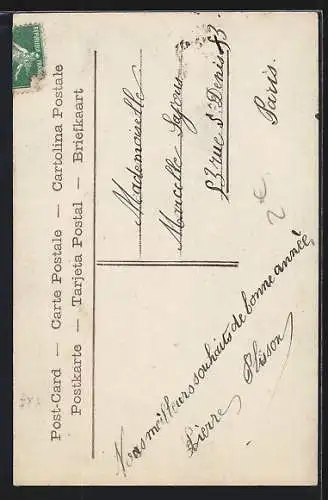 Post-Card — Carte Postale — Cartolina Postale
Postkarte — Tarjeta Postal — Briefkaart
Mademoiselle
Marcelle
53 rue St Denis 53
Paris.
2 €
meilleurs souhaits de bonne année
Pierre